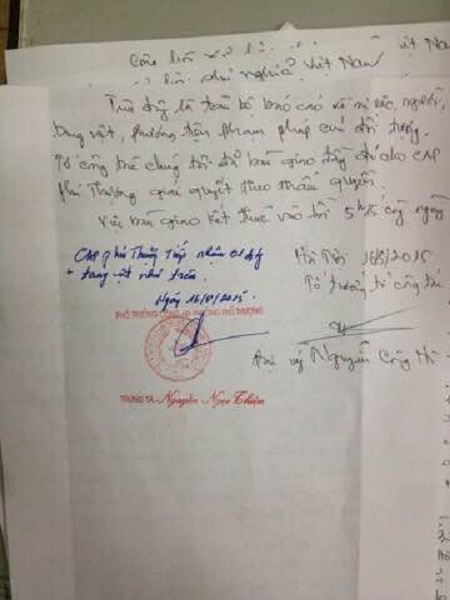 Cộng hòa xã hội
Việt Nam
chủ nghĩa Việt Nam
Trên đây là toàn bộ báo cáo về vụ việc, người,
tang vật, phương tiện phạm pháp của đối tượng.
Tổ công tác chúng tôi đã bàn giao đầy đủ cho CAP
Phú Thượng giải quyết theo thẩm quyền.
Việc bàn giao kết thúc vào hồi 5h15 cùng ngày
CAP Phú Thượng Tiếp nhận
+ tang vật như trên.
Ngày 16/8/2015.
Hà Nội 16/8/2015
Tổ trưởng tổ công tác
PHÓ TRƯỞNG CÔNG AN PHƯỜNG PHÚ THƯỢNG
Đại úy Nguyễn Công
TRUNG TÁ Nguyễn Ngọc Thiện